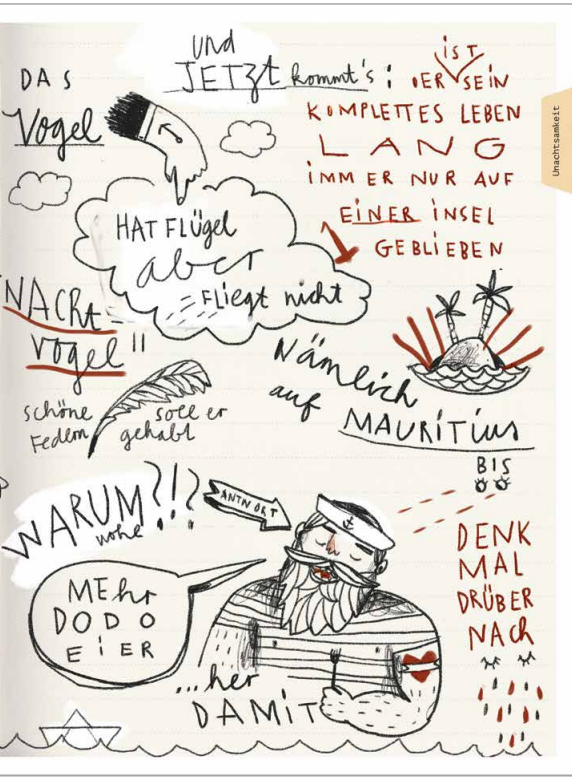 und
JETZt kommt's:
DAS
Vogel
ist
ER SEiN
KOMPLETTES LEBEN
LANG
iMMER NUR AUF
EiNER iNSEL
GEBLiEBEN
HAT FLÜgel
aber
fliegt nicht
"NACht-
Vogel"
schöne
Federn
soll er
gehabt
Nämlich
auf
MAURiTius
BIS
WARUM?!?
wohl
ANTWORT
MEhr
DODO
EiER
...her
DAMiT
DENK
MAL
DRÜBER
NACh
Unachtsamkeit